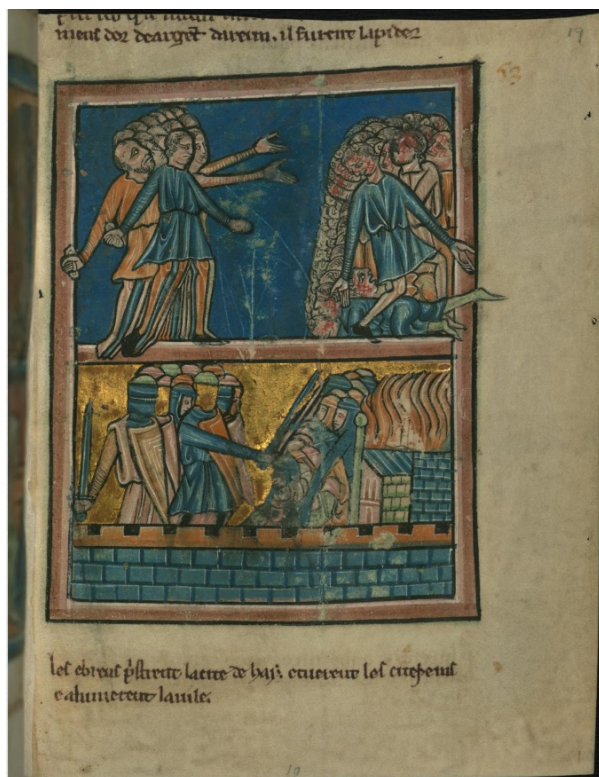 19
mens dor dearget dareim. il furent lapidez
les ebreus pristrent lacite de hay. etuerent les citeheins
ealumerent lauile.